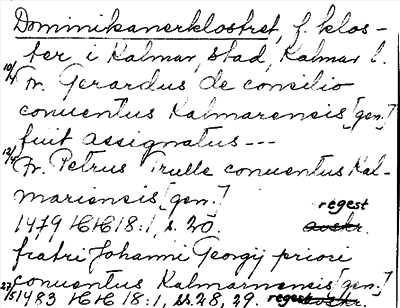 Dominikanerklostret, f. klos-
ter i Kalmar, stad, Kalmar l.
10/4 Fr. Gerardus de consilio
conuentus Kalmarensis [gen.]
fuit assignatus ---
12/4 Fr. Petrus Trulle conuentus Kal-
mariensis [gen.]
regest
1479 HH 18:1, s. 20. avskr.
fratri Johanni Georgij priore
conuentus Kalmarnensis [gen.]
27/5 1483 HH 18:1, ss. 28, 29. regest avskr.